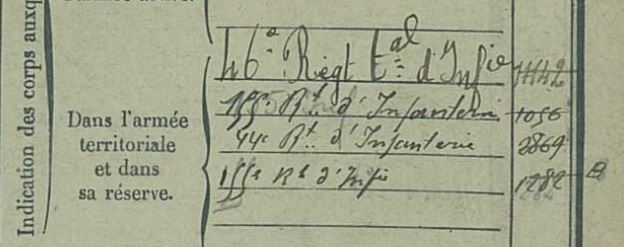 Indication des corps auxq
Dans l'armée
territoriale
et dans
sa réserve.
46e Régt tal d'Infie 11142
155e Rt. d'Infanterie 1056
44e Rt. d'Infanterie 2869
155e Rt d'Infie 1282